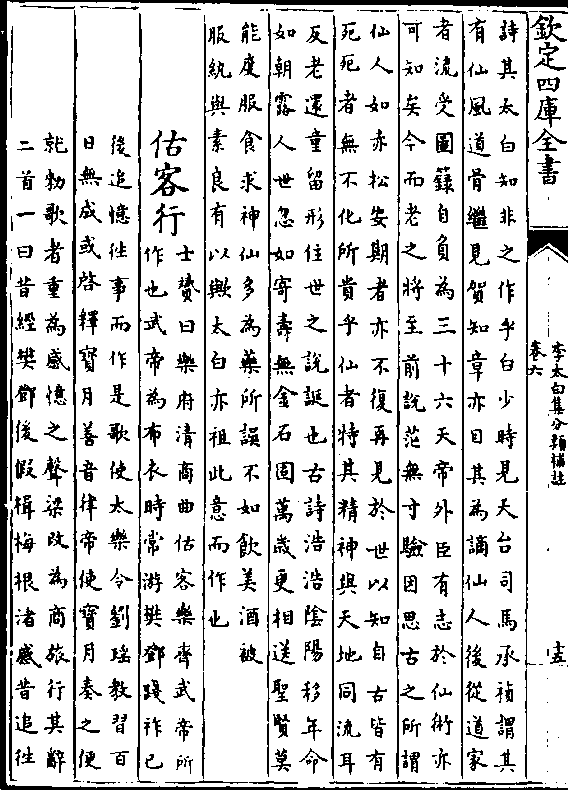 欽定四庫全書
李太白集分類補註
卷六
十五
詩其太白知非之作乎白少時見天台司馬承禎謂其
有仙風道骨繼見賀知章亦目其為謫仙人後從道家
者流受圖籙自負為三十六天帝外臣有志於仙術亦
可知矣今而老之將至前說茫無寸驗因思古之所謂
仙人如赤松安期者亦不復再見於世以知自古皆有
死死者無不化所貴乎仙者特其精神與天地同流耳
反老還童留形住世之說誕也古詩浩浩陰陽移年命
如朝露人世忽如寄壽無金石固萬歲更相送聖賢莫
能度服食求神仙多為藥所誤不如飲美酒被
服紈與素良有以歟太白亦祖此意而作也
估客行
士贇曰樂府清商曲估客樂齊武帝所
作也武帝為布衣時常游樊鄧踐祚已
後追憶往事而作是歌使太樂令劉瑤教習百
日無成或啓釋寶月善音律帝使寶月奏之便
就勅歌者重為感憶之聲梁改為商旅行其辭
二首一曰昔經樊鄧後假楫梅根渚感昔追往